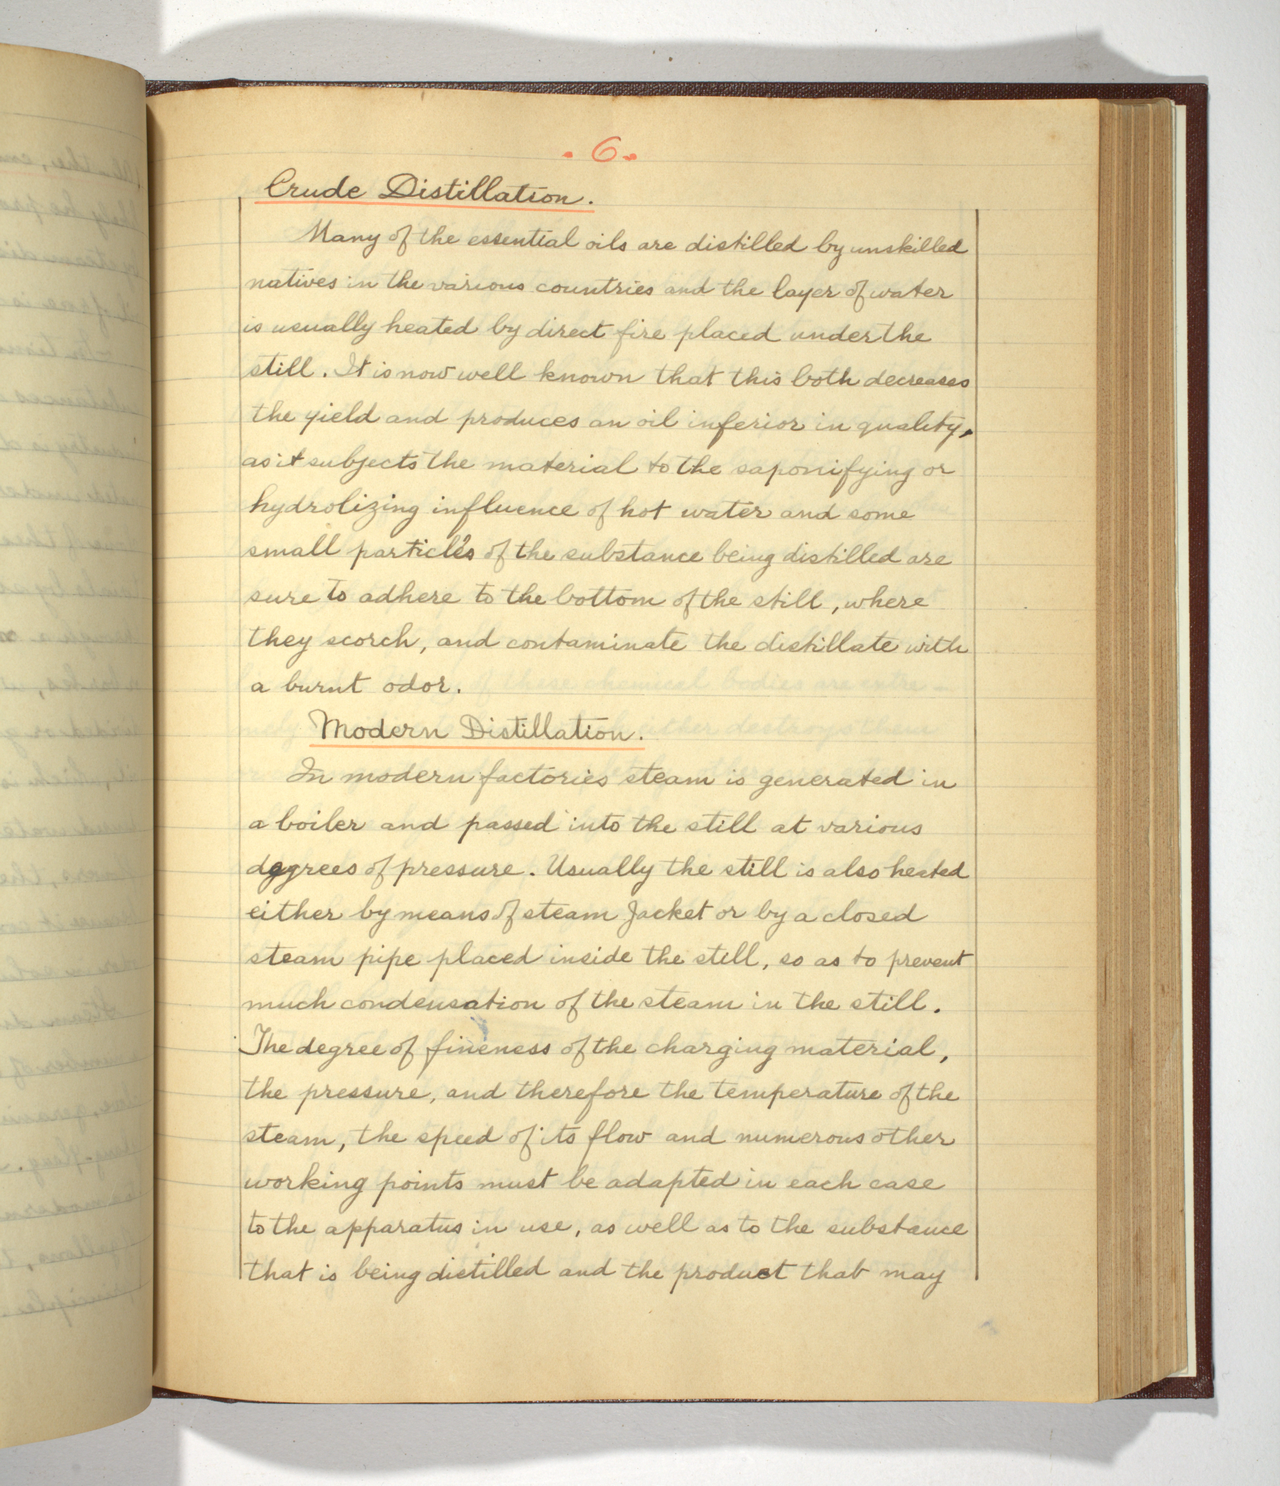 . 6 .
Crude Distillation.
Many of the essential oils are distilled by unskilled
natives in the various countries and the layer of water
is usually heated by direct fire placed under the
still. It is now well known that this both decreases
the yield and produces an oil inferior in quality,
as it subjects the material to the saponifying or
hydrolizing influence of hot water and some
small particles of the substance being distilled are
sure to adhere to the bottom of the still, where
they scorch, and contaminate the distillate with
a burnt odor.
Modern Distillation.
In modern factories steam is generated in
a boiler and passed into the still at various
degrees of pressure. Usually the still is also heated
either by means of steam Jacket or by a closed
steam pipe placed inside the still, so as to prevent
much condensation of the steam in the still.
The degree of fineness of the charging material,
the pressure, and therefore the temperature of the
steam, the speed of its flow and numerous other
working points must be adapted in each case
to the apparatus in use, as well as to the substance
that is being distilled and the product that may